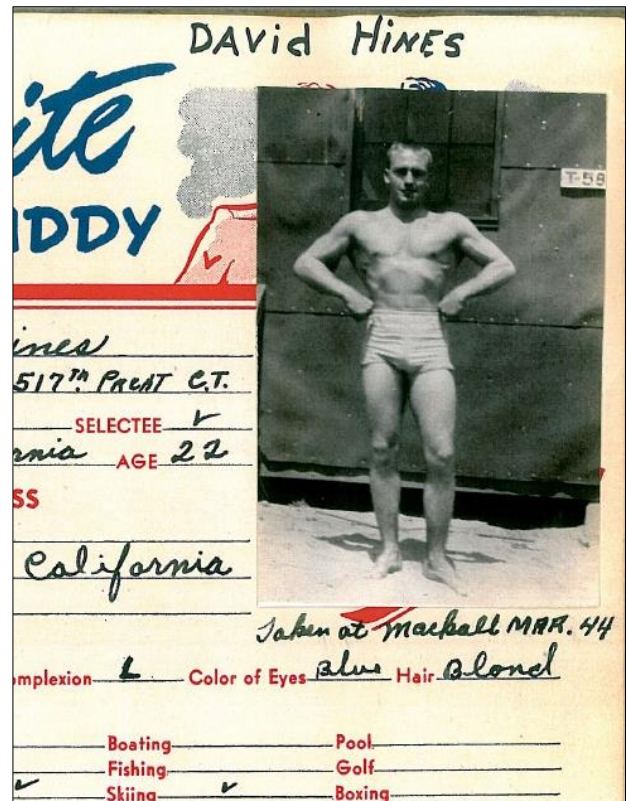 DAVid HINES
ite
DDY
T-58
ines
517TH PRCHT C.T.
SELECTEE ✓
rnia AGE 22
SS
California
Taken at Mackall MAR. 44
mplexion L Color of Eyes Blue Hair Blond
Boating Pool
Fishing Golf
✓ Skiing ✓ Boxing